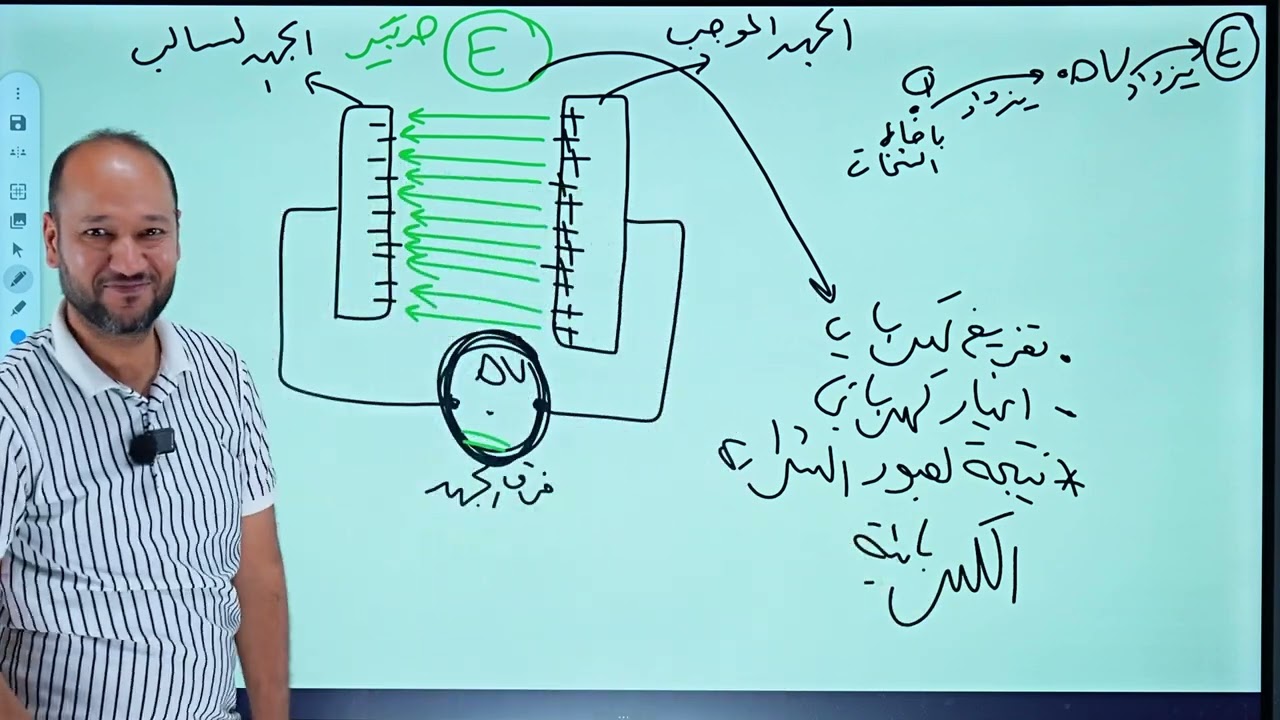 الجهد الموجب
E كبير
الجهد السالب
Q
باضافة
الشحنات
يزداد
ΔV
يزداد
E
ΔV
فرق الجهد
• تفريغ كهربائي
- انهيار كهربائي
* نتيجة لعبور الشرارة
الكهربائية